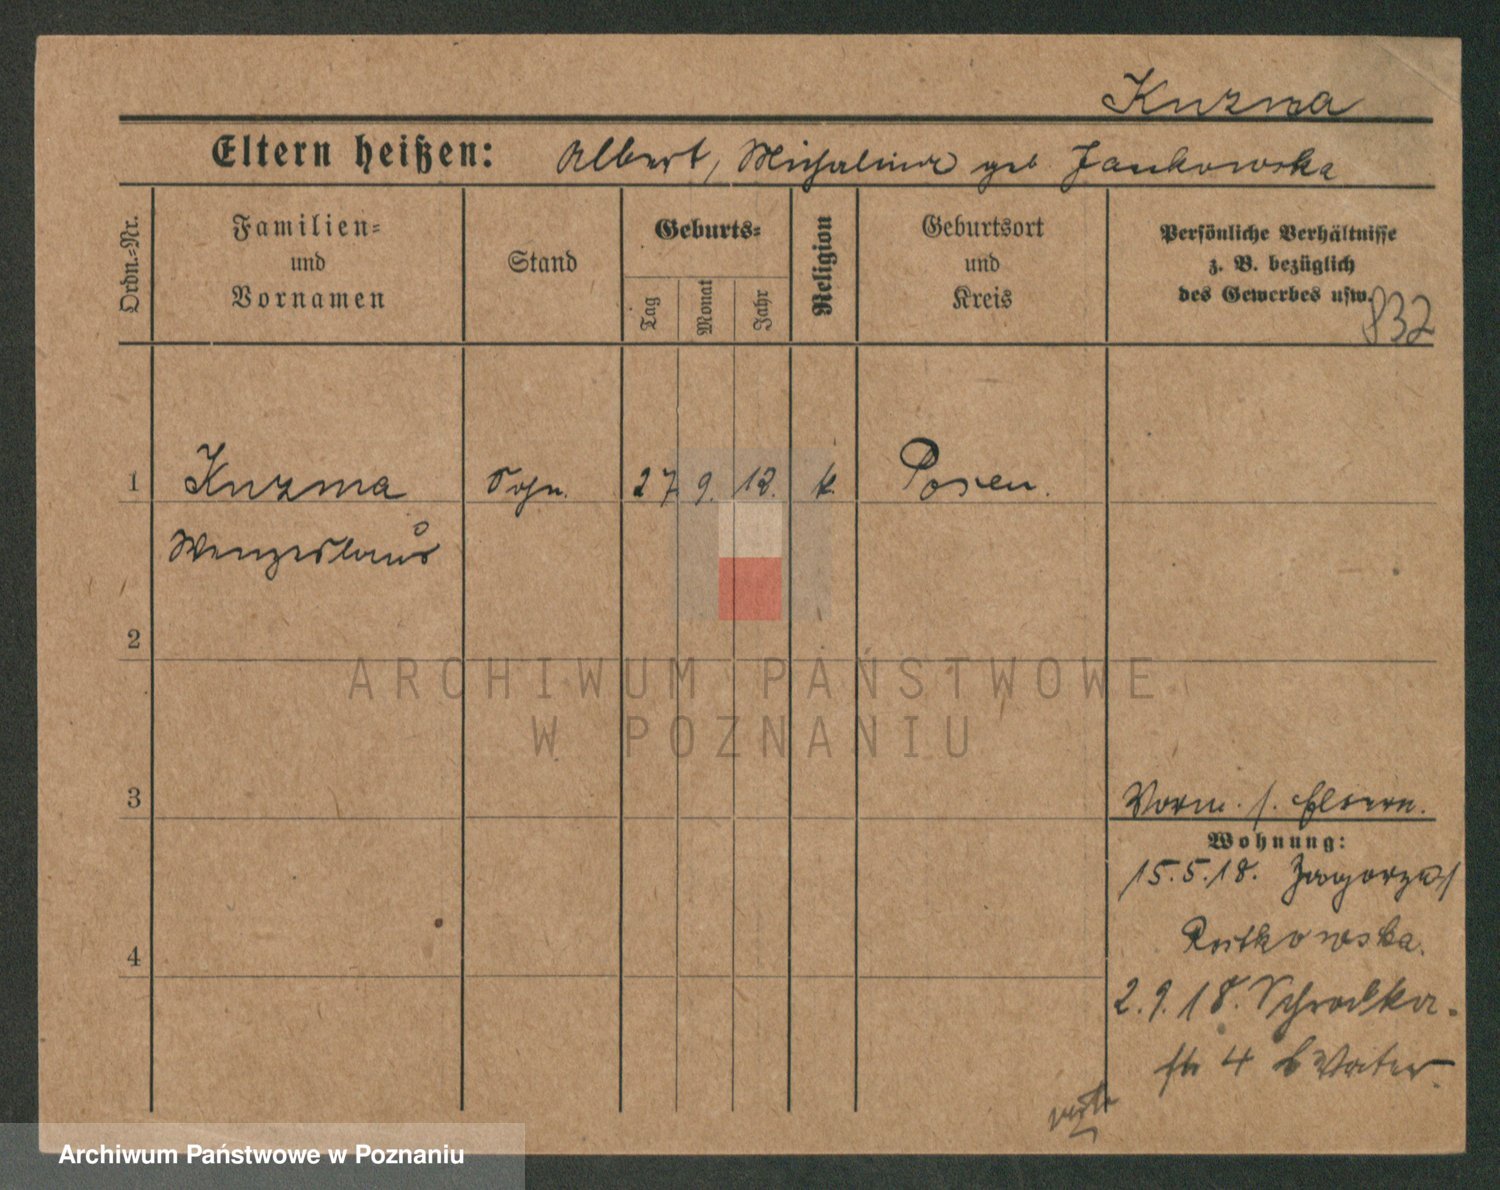 Kuzma
Eltern heißen: Albert, Michalina geb. Jankowska
Ordn.=Nr.
Familien=
und
Vornamen
Stand
Geburts=
Tag
Monat
Jahr
Religion
Geburtsort
und
Kreis
Persönliche Verhältnisse
z. B. bezüglich
des Gewerbes usw.
832
1 Kuzma Sohn. 27. 9. 12. k. Posen.
Wenzeslaus
2
ARCHIWUM PAŃSTWOWE
W POZNANIU
3
Vorm. s. Eltern.
Wohnung:
15.5.18.
Rutkowska.
4
2.9.18. Schrodka-
str 4 b Vater.
Archiwum Państwowe w Poznaniu